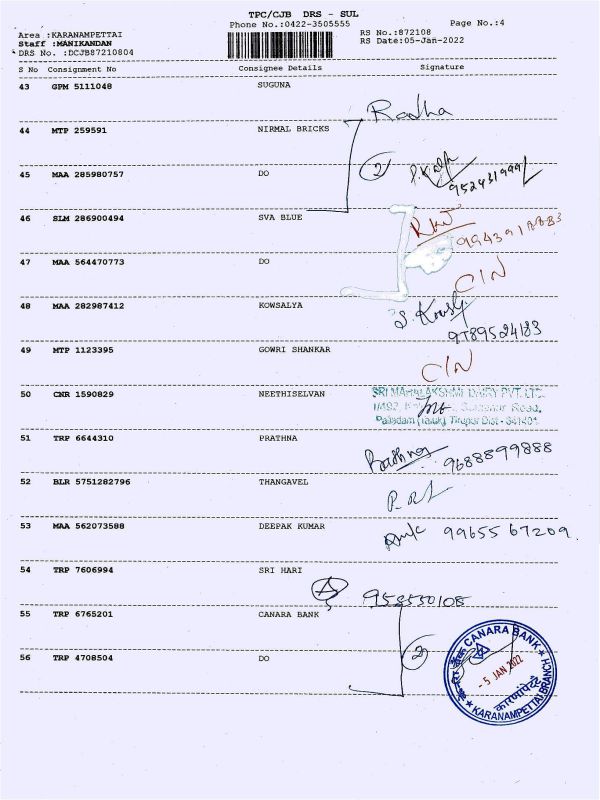 TPC/CJB DRS - SUL
Phone No.:0422-3505555
Page No.:4
Area :KARANAMPETTAI
RS No.:872108
Staff :MANIKANDAN
RS Date:05-Jan-2022
DRS No. :DCJB87210804
S No Consignment No Consignee Details Signature
43 GPM 5111048 SUGUNA
Radha
44 MTP 259591 NIRMAL BRICKS
45 MAA 285980757 DO
2
46 SLM 286900494 SVA BLUE
47 MAA 564470773 DO
C/N
48 MAA 282987412 KOWSALYA
S. Kowsly
9789524183
49 MTP 1123395 GOWRI SHANKAR
C/N
50 CNR 1590829 NEETHISELVAN
SRI MAHALAKSHMI DAIRY PVT. LTD.
Road,
Palladam (Taluk), Tirupur Dist - 641401
51 TRP 6644310 PRATHNA
9688899888
52 BLR 5751282796 THANGAVEL
53 MAA 562073588 DEEPAK KUMAR
9965567209
54 TRP 7606994 SRI HARI
A
55 TRP 6765201 CANARA BANK
56 TRP 4708504 DO
2
CANARA BANK
- 5 JAN 2022
KARANAMPETTAI BRANCH